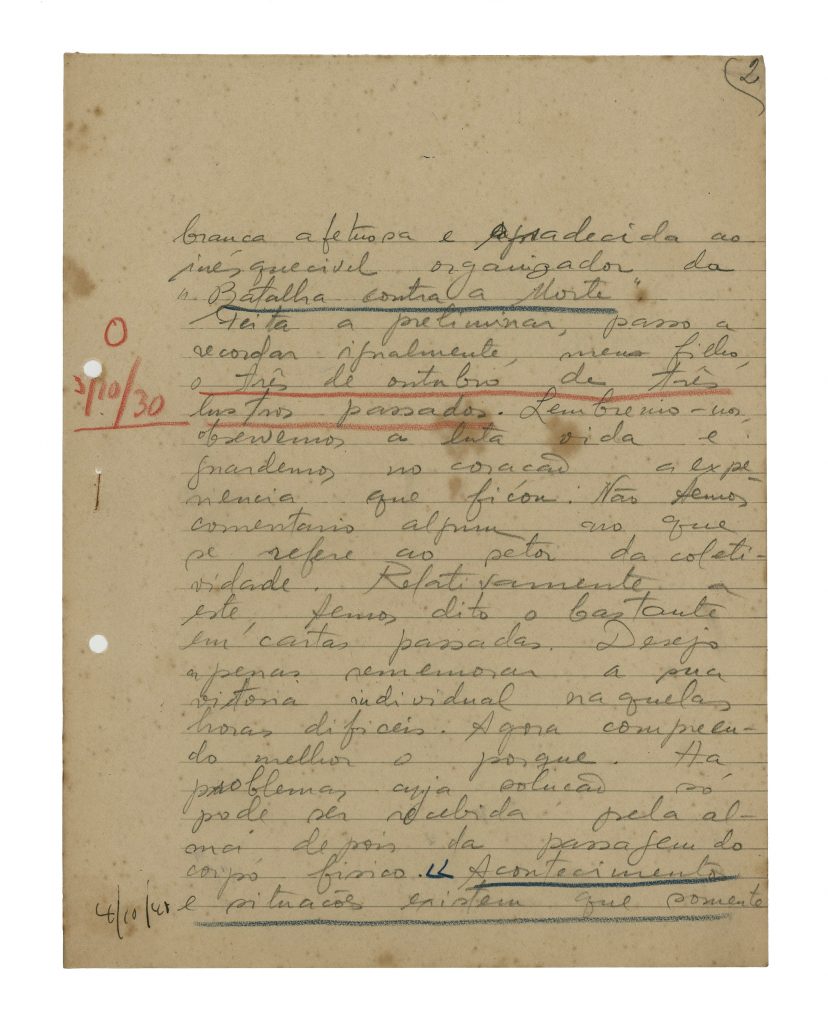 2
brança afetuosa e agradecida ao
inésquecivel organizador da
"Batalha contra a Morte"
Feita a preliminar, passo a
recordar igualmente, meu filho,
o três de outubro de três
lustros passados. Lembremo-nos,
observemos a luta vida e
guardemos no coração a expe-
riencia que ficou. Não temos
comentario algum no que
se refere ao setor da coleti-
vidade. Relativamente a
este, temos dito o bastante
em cartas passadas. Desejo
apenas rememorar a sua
vitoria individual naquelas
horas dificeis. Agora compreen-
do melhor o porque. Ha
problemas cuja solução só
pode ser recebida pela al-
ma depois da passagem do
corpo fisico. Acontecimentos
e situações existem que somente
0
3/10/30